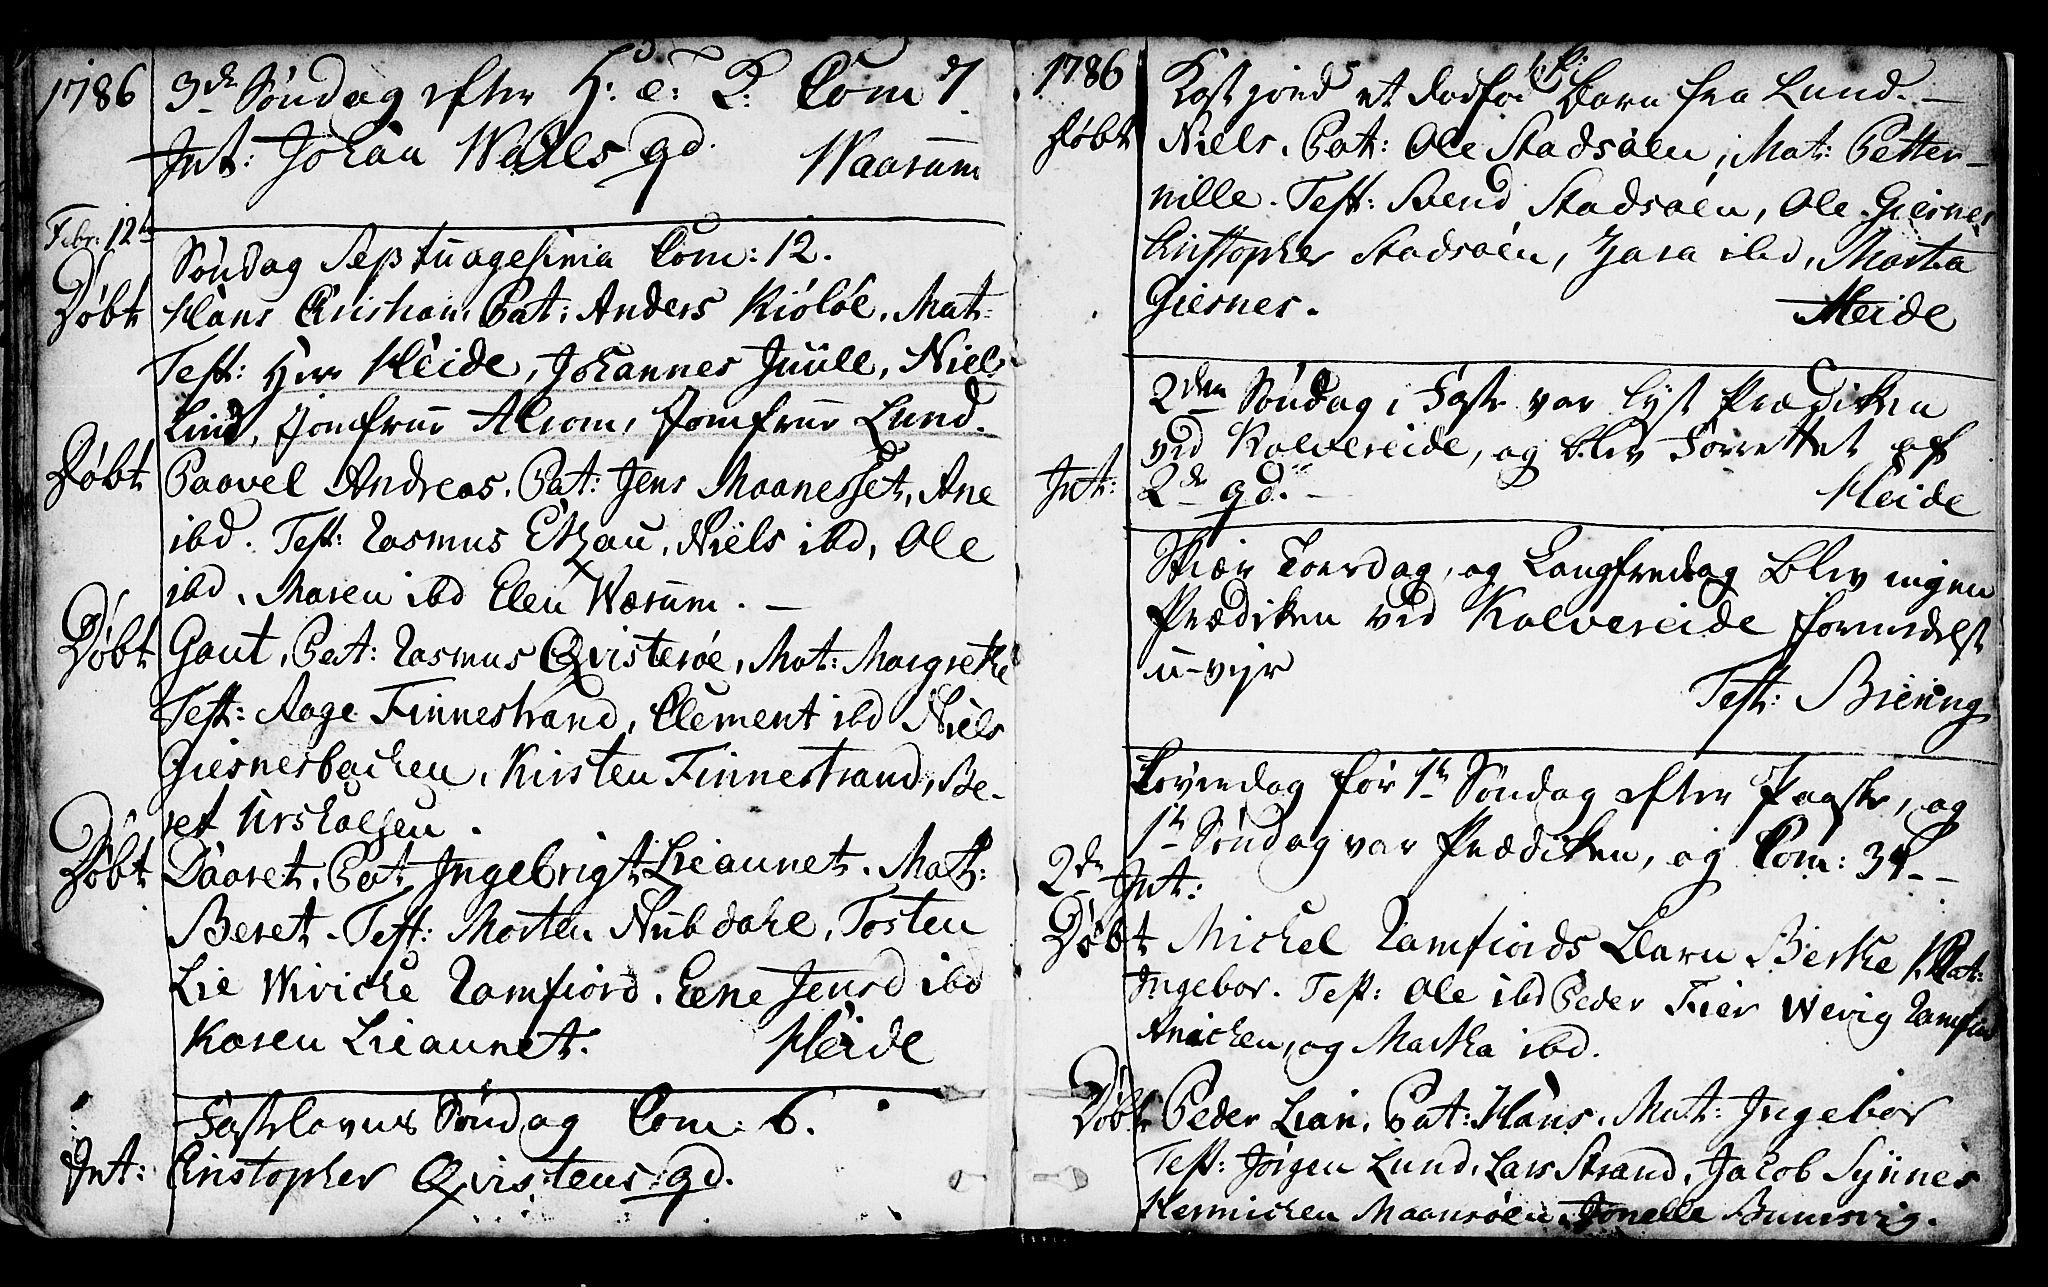 1786
3de Søndag efter H: 3: K: Com 7
Int: Johan Wahls qd. Waarum
Febr: 12te
Søndag Septuagesima Com: 12.
Døbt Hans Christian. Pat: Anders Kiøløe. Mat:
Test: Herr Heide, Johannes Juull, Niels
Lind, Jomfrue Alrom, Jomfrue Lund.
Døbt Paavel Andreas. Pat: Jens Maanesset, Ane
ibd. Test: Rasmus Ekhau, Niels ibd, Ole
ibd. Maren ibd Elen Wærum. —
Døbt Gaut, Pat: Rasmus Qvisterøe, Mat: Margrethe
Test: Aage Finnestrand, Clement ibd Niels
Giesnesbachen, Kirsten Finnestrand, Be-
ret
Døbt Daaret. Pat Ingebrigt Lieaunet. Mat:
Beret. Test: Morten Nubdahl, Tosten
Lie Wiviche Ramfiord. Lene Jensd ibd
Karen Lieaunet. Heide
Fastelavns Søndag Com: 6.
Int: Christopher Qvistens qd.
1786
et Barn fra Lund. —
Døbt Niels. Pat: Ole Stadsøen, Mat: Petter-
nille. Test: Svend Stadsøen, Ole Giesnes
Christopher Stadsøen, Zara ibd, Martha
Giesnes. Heide
2den Søndag i Faste var lyst Prædiken
ved Kalvereide, og blev Forrettet af
Int: 2de qd. — Heide
Skiær Torsdag, og Langfredag blev ingen
Prædiken ved Kalvereide formedelst
u-vejr
Test: Biering
Løverdag før 1te Søndag efter Paaske, og
1te Søndag var Prædiken, og Com: 34 —
2de Int:
Døbt Michel Ramfiords Barn Berthe Mat:
Ingebor. Test: Ole ibd Peder Fier Wevig Ramfiord
Anichen, og Martha ibd.
Døbt Peder Lian. Pat: Hans. Mat: Ingebor
Test: Jørgen Lund, Lars Strand, Jacob Synnes
Hermichen Maansøen, Jonelle